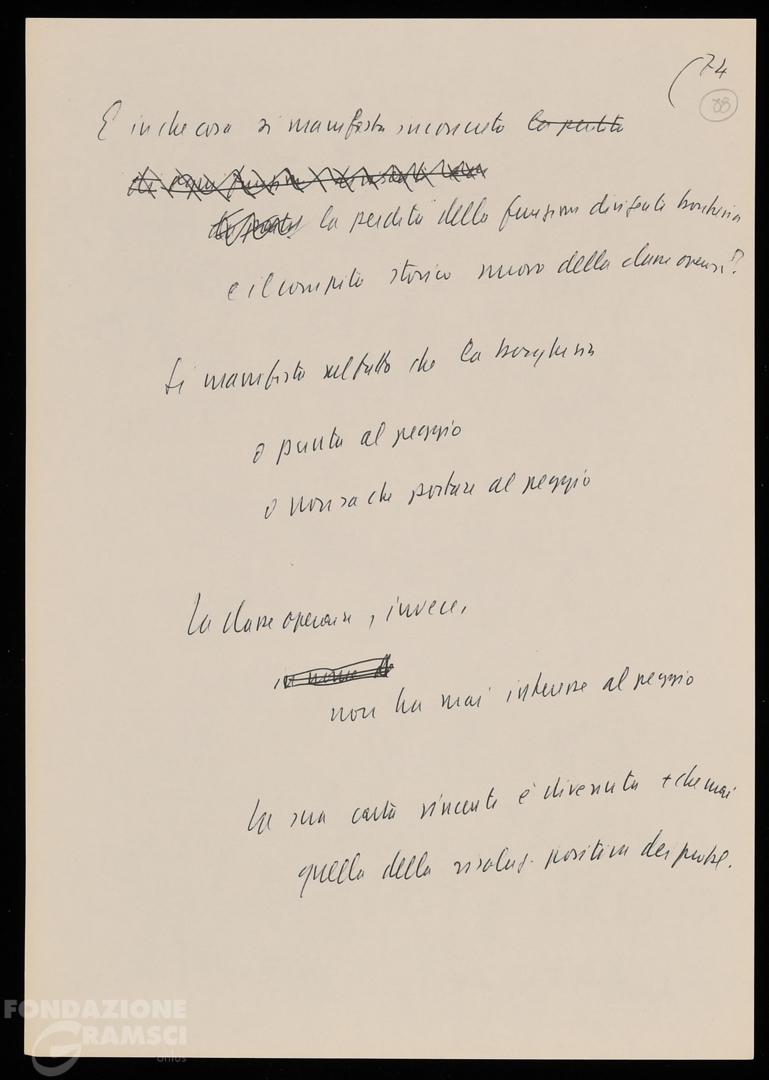 (74
88
E in che cosa si manifesta in concreto la perdita
la perdita della funzione dirigente borghesia
e il compito storico nuovo della classe operaia?
Si manifesta nel fatto che la borghesia
o punta al peggio
o non sa che portare al peggio
La classe operaia, invece,
in nome di
non ha mai interesse al peggio
La sua carta vincente è divenuta + che mai
quella della risoluz. positiva dei probl.
FONDAZIONE
GRAMSCI
onlus